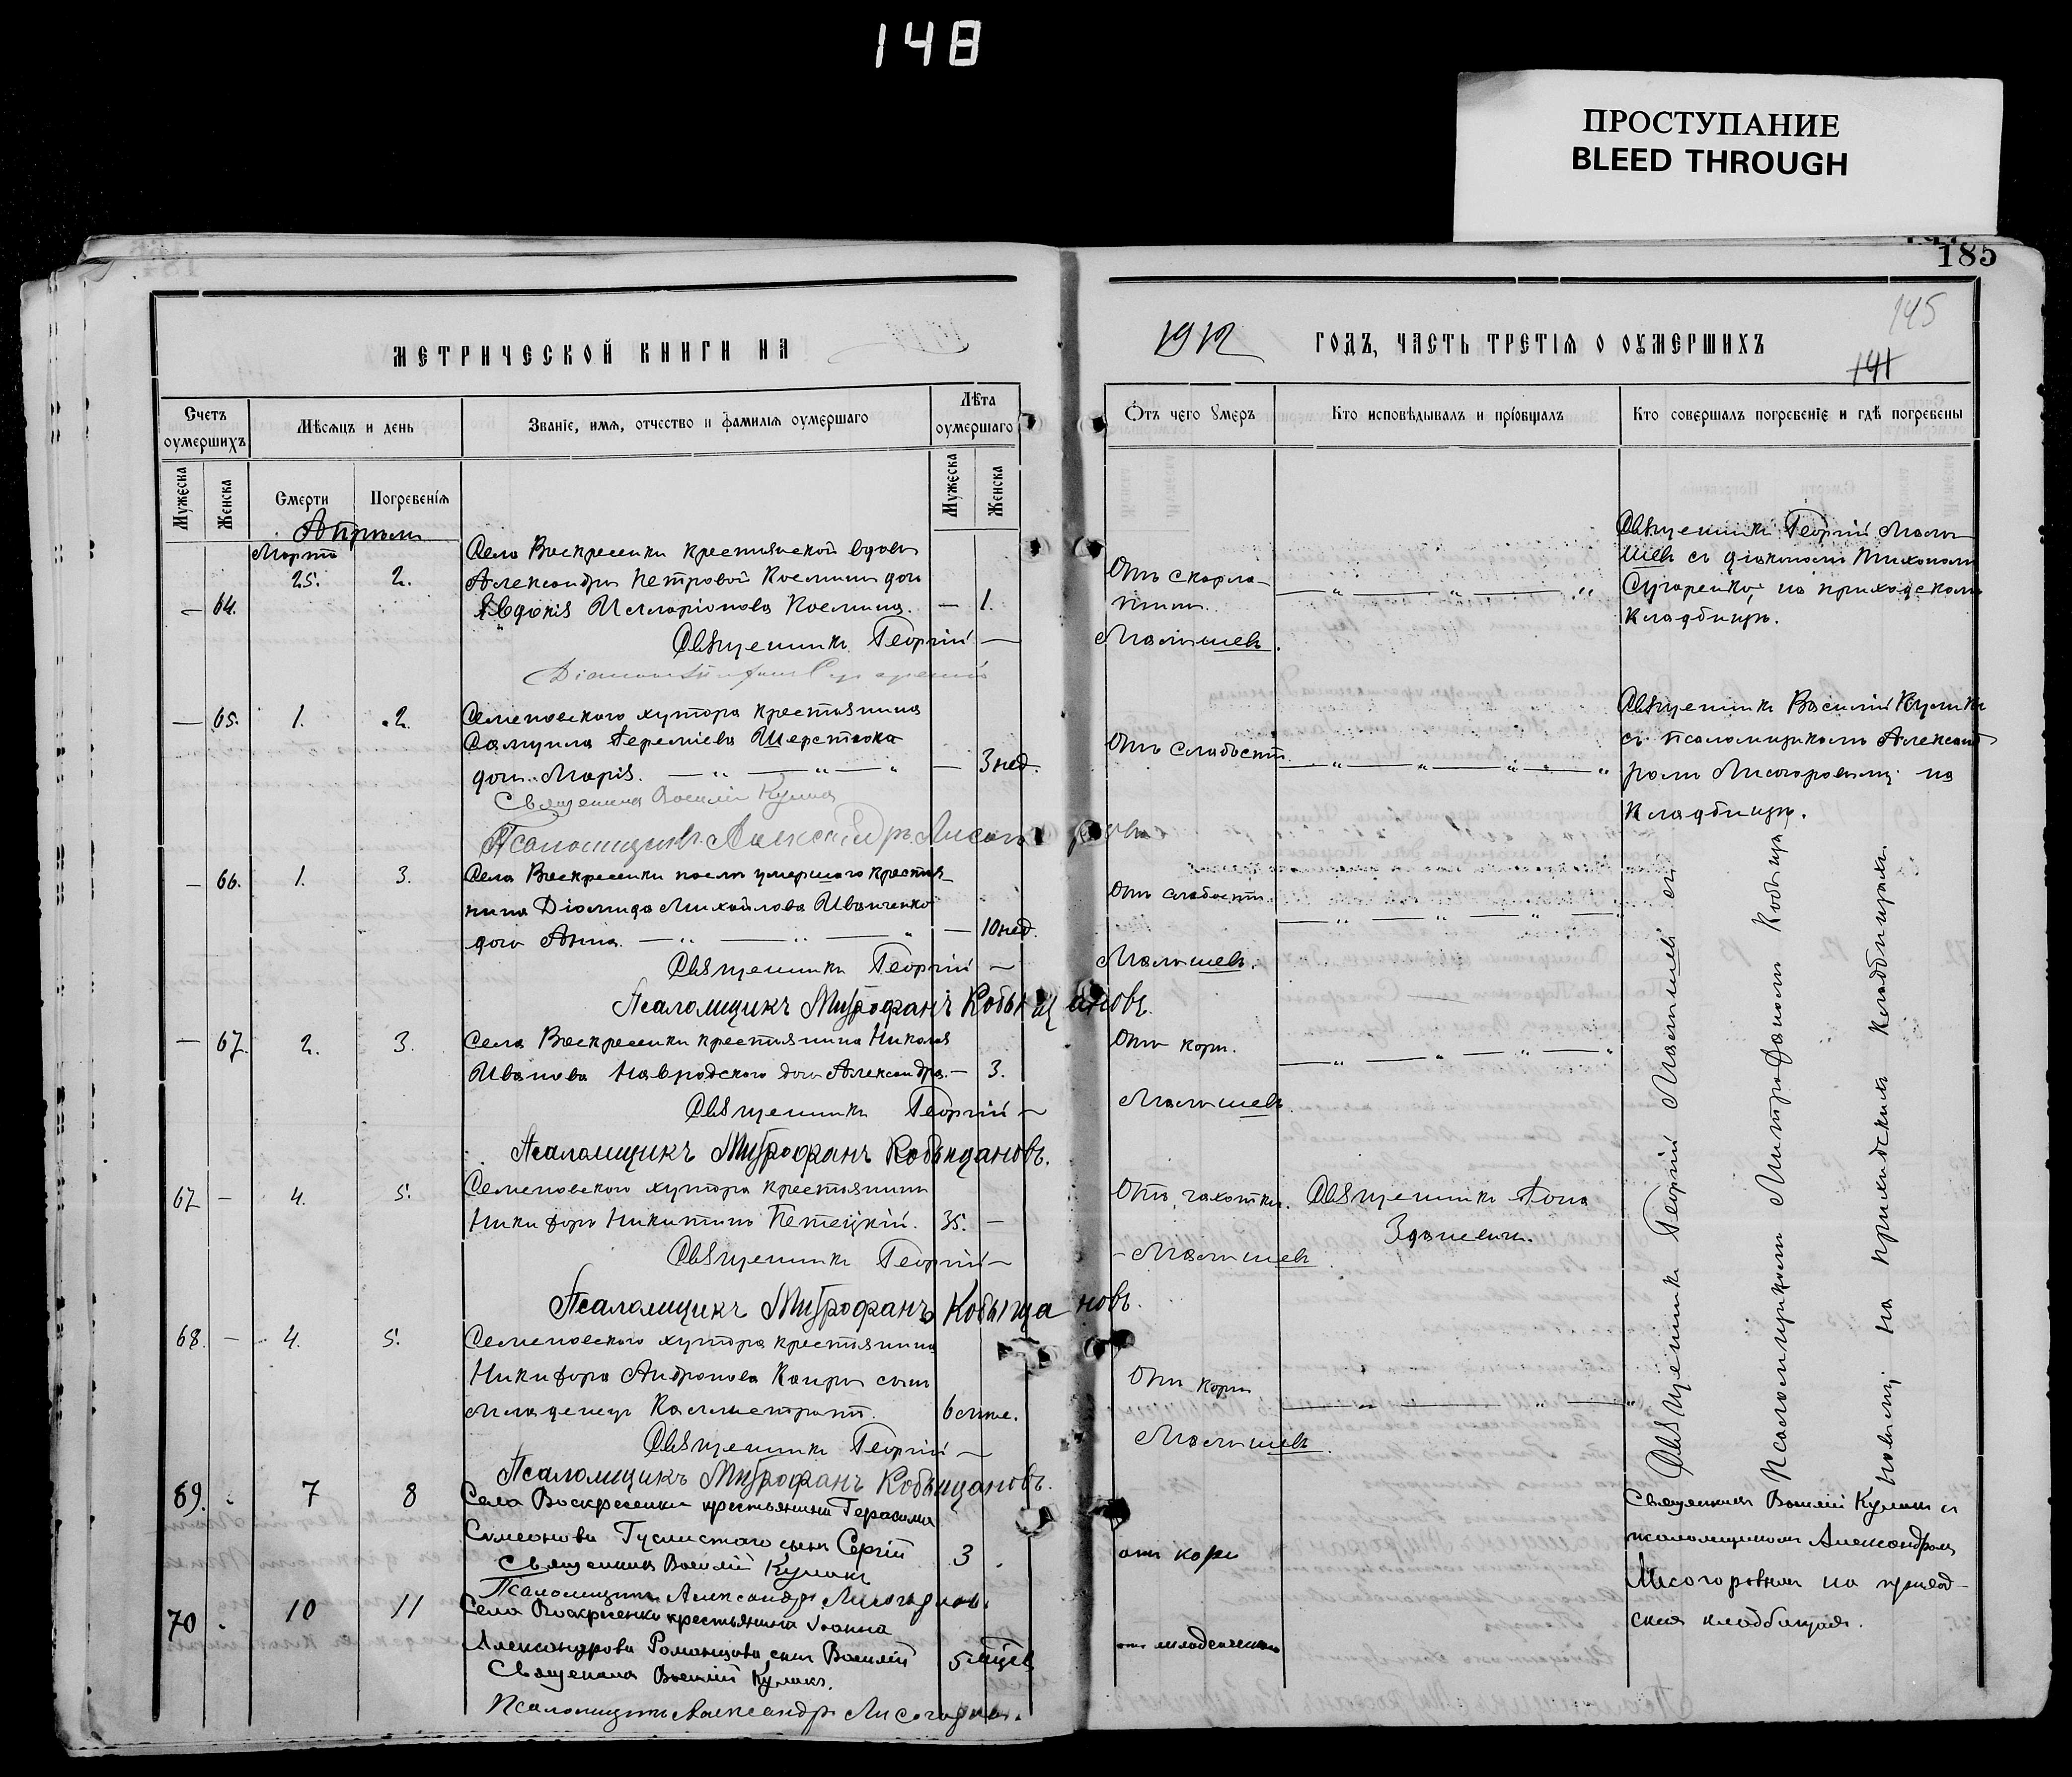 148
ПРОСТУПАНИЕ
BLEED THROUGH
185
145
141
МЕТРИЧЕСКОЙ КНИГИ НА
1912
ГОДЪ, ЧАСТЬ ТРЕТІЯ О ОУМЕРШИХЪ
Счетъ оумершихъ
Мѣсяцъ и день
Званіе, имя, отчество и фамилія оумершаго
Лѣта оумершаго
Отъ чего умеръ
Кто исповѣдывалъ и пріобщалъ
Кто совершалъ погребеніе и гдѣ погребены
Мужеска
Женска
Смерти
Погребенія
Мужеска
Женска
Апрѣль
Мартъ
— 64. 25. 2.
Села Воскресенки крестьянской вдовы
Александры Петровой Косминой дочь
Евдокія Илларіонова Космина. — 1.
Отъ скарла-
тины.
Священникъ Георгій Малы-
шевъ съ діакономъ Тихономъ
Сухаренко, на приходскомъ
кладбищѣ.
Священникъ Георгій — Малышевъ.
— 65. 1. 2.
Семеновского хутора крестьянина
Самуила Іереміева Шерстюка
дочь Марія. — 3 нед.
Отъ слабости.
Священникъ Василій Куликъ
съ псаломщикомъ Александ
ромъ Лисогоровымъ на
кладбищѣ.
Священникъ Василій Куликъ
Псаломщикъ Александръ Лисогоровъ
— 66. 1. 3.
Села Воскресенки послѣ умершого крестья-
нина Діомида Михайлова Иванченко
дочь Анна. — 10 нед.
Отъ слабости
Священникъ Георгій — Малышевъ.
Псаломщикъ Митрофанъ Кобыщановъ.
— 67. 2. 3.
Села Воскресенки крестьянина Николая
Иванова Навродского дочь Александра. — 3.
Отъ кори.
Священникъ Георгій — Малышевъ.
Псаломщикъ Митрофанъ Кобыщановъ.
67 — 4. 5.
Семеновского хутора крестьянинъ
Никифоръ Никитинъ Петецкій. 35. —
Отъ чахотки. Священникъ Іона
Зданевич.
Священникъ Георгій — Малышевъ.
Псаломщикъ Митрофанъ Кобыщановъ.
68. — 4. 5.
Семеновского хутора крестьянина
Никифора Андронова сынъ
младенецъ Каллистратъ. 6
Отъ кори
Священникъ Георгій — Малышевъ.
Псаломщикъ Митрофанъ Кобыщановъ.
Священникъ Георгій Малышевъ съ
псаломщикомъ Митрофаномъ Кобыща-
новымъ, на приходскихъ кладбищахъ.
69. 7 8
Села Воскресенки крестьянина Герасима
Симеонова Гуслистаго сынъ Сергій 3
отъ кори
Священникъ Василій Куликъ съ
псаломщикомъ Александромъ
Лисогоровымъ на приход-
скомъ кладбищѣ.
Священникъ Василій Куликъ
Псаломщикъ Александръ Лисогоровъ.
70 10 11
Села Воскресенки крестьянина Іоанна
Александрова Романцова сынъ Василій 5 мцев
отъ младенческой
Священникъ Василій Куликъ.
Псаломщикъ Александръ Лисогоровъ.